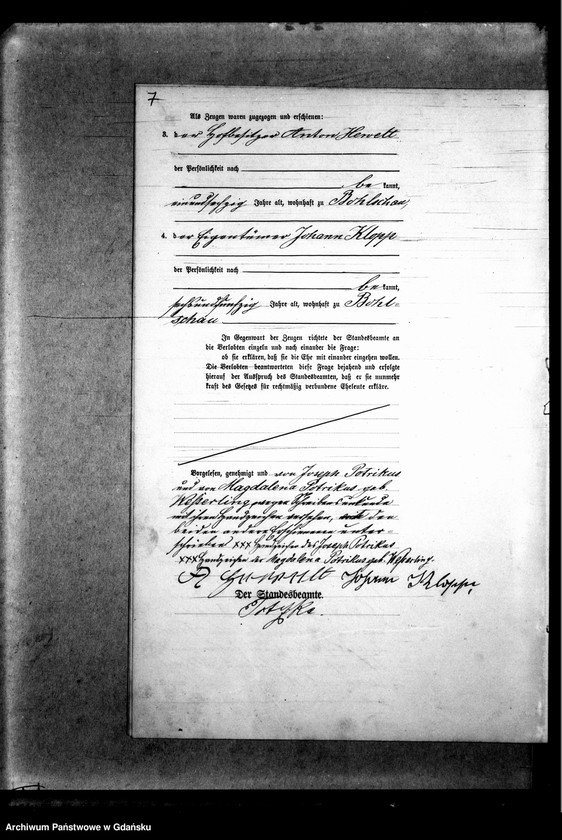 7
Als Zeugen waren zugezogen und erschienen:
3. der Hofbesitzer Anton Hewelt
der Persönlichkeit nach
be kannt,
einundsechzig Jahre alt, wohnhaft zu Bohlschau,
4. der Eigentümer Johann Klopp
der Persönlichkeit nach
be kannt,
sechsundfünfzig Jahre alt, wohnhaft zu Bohl-
schau
In Gegenwart der Zeugen richtete der Standesbeamte an
die Verlobten einzeln und nach einander die Frage:
ob sie erklären, daß sie die Ehe mit einander eingehen wollen.
Die Verlobten beantworteten diese Frage bejahend und erfolgte
hierauf der Ausspruch des Standesbeamten, daß er sie nunmehr
kraft des Gesetzes für rechtmäßig verbundene Eheleute erkläre.
Vorgelesen, genehmigt und von Joseph Potrikus
und von Magdalena Potrikus geb.
Weßerling wegen Schreibensunkunde
mit ihren Handzeichen versehen, von den
beiden andern Erschienenen unter-
schrieben xxx Handzeichen des Joseph Potrikus
xxx Handzeichen der Magdalena Potrikus geb. Weßerling
A Hewelt Johann Kloppe,
Der Standesbeamte.